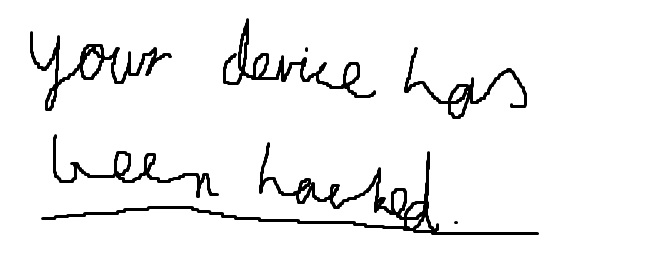 your device has
been hacked.